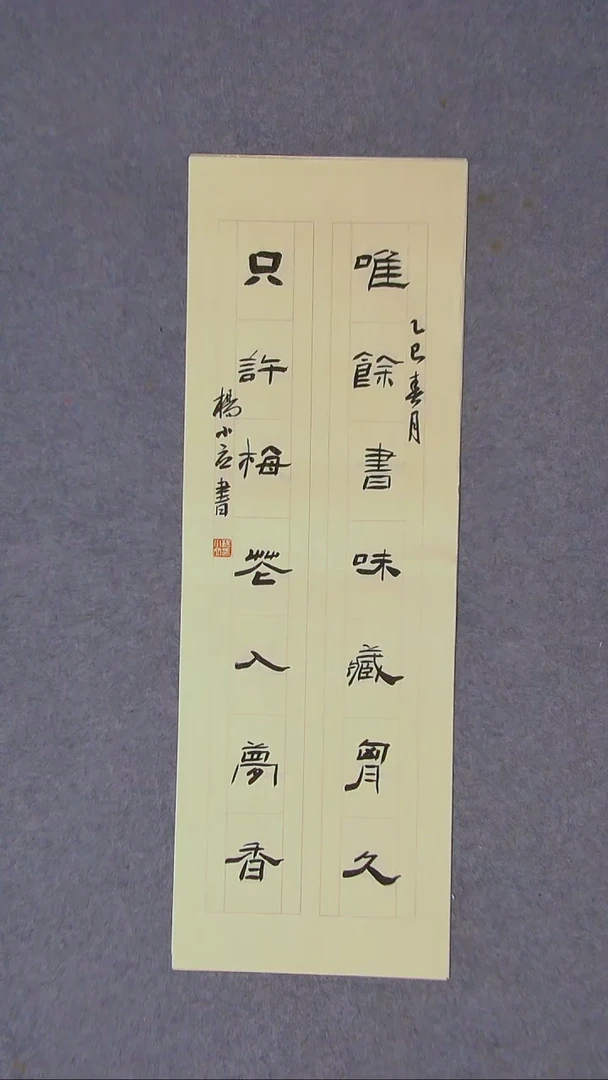 乙巳春月
唯餘書味藏胷久
只許梅花入夢香
楊小書